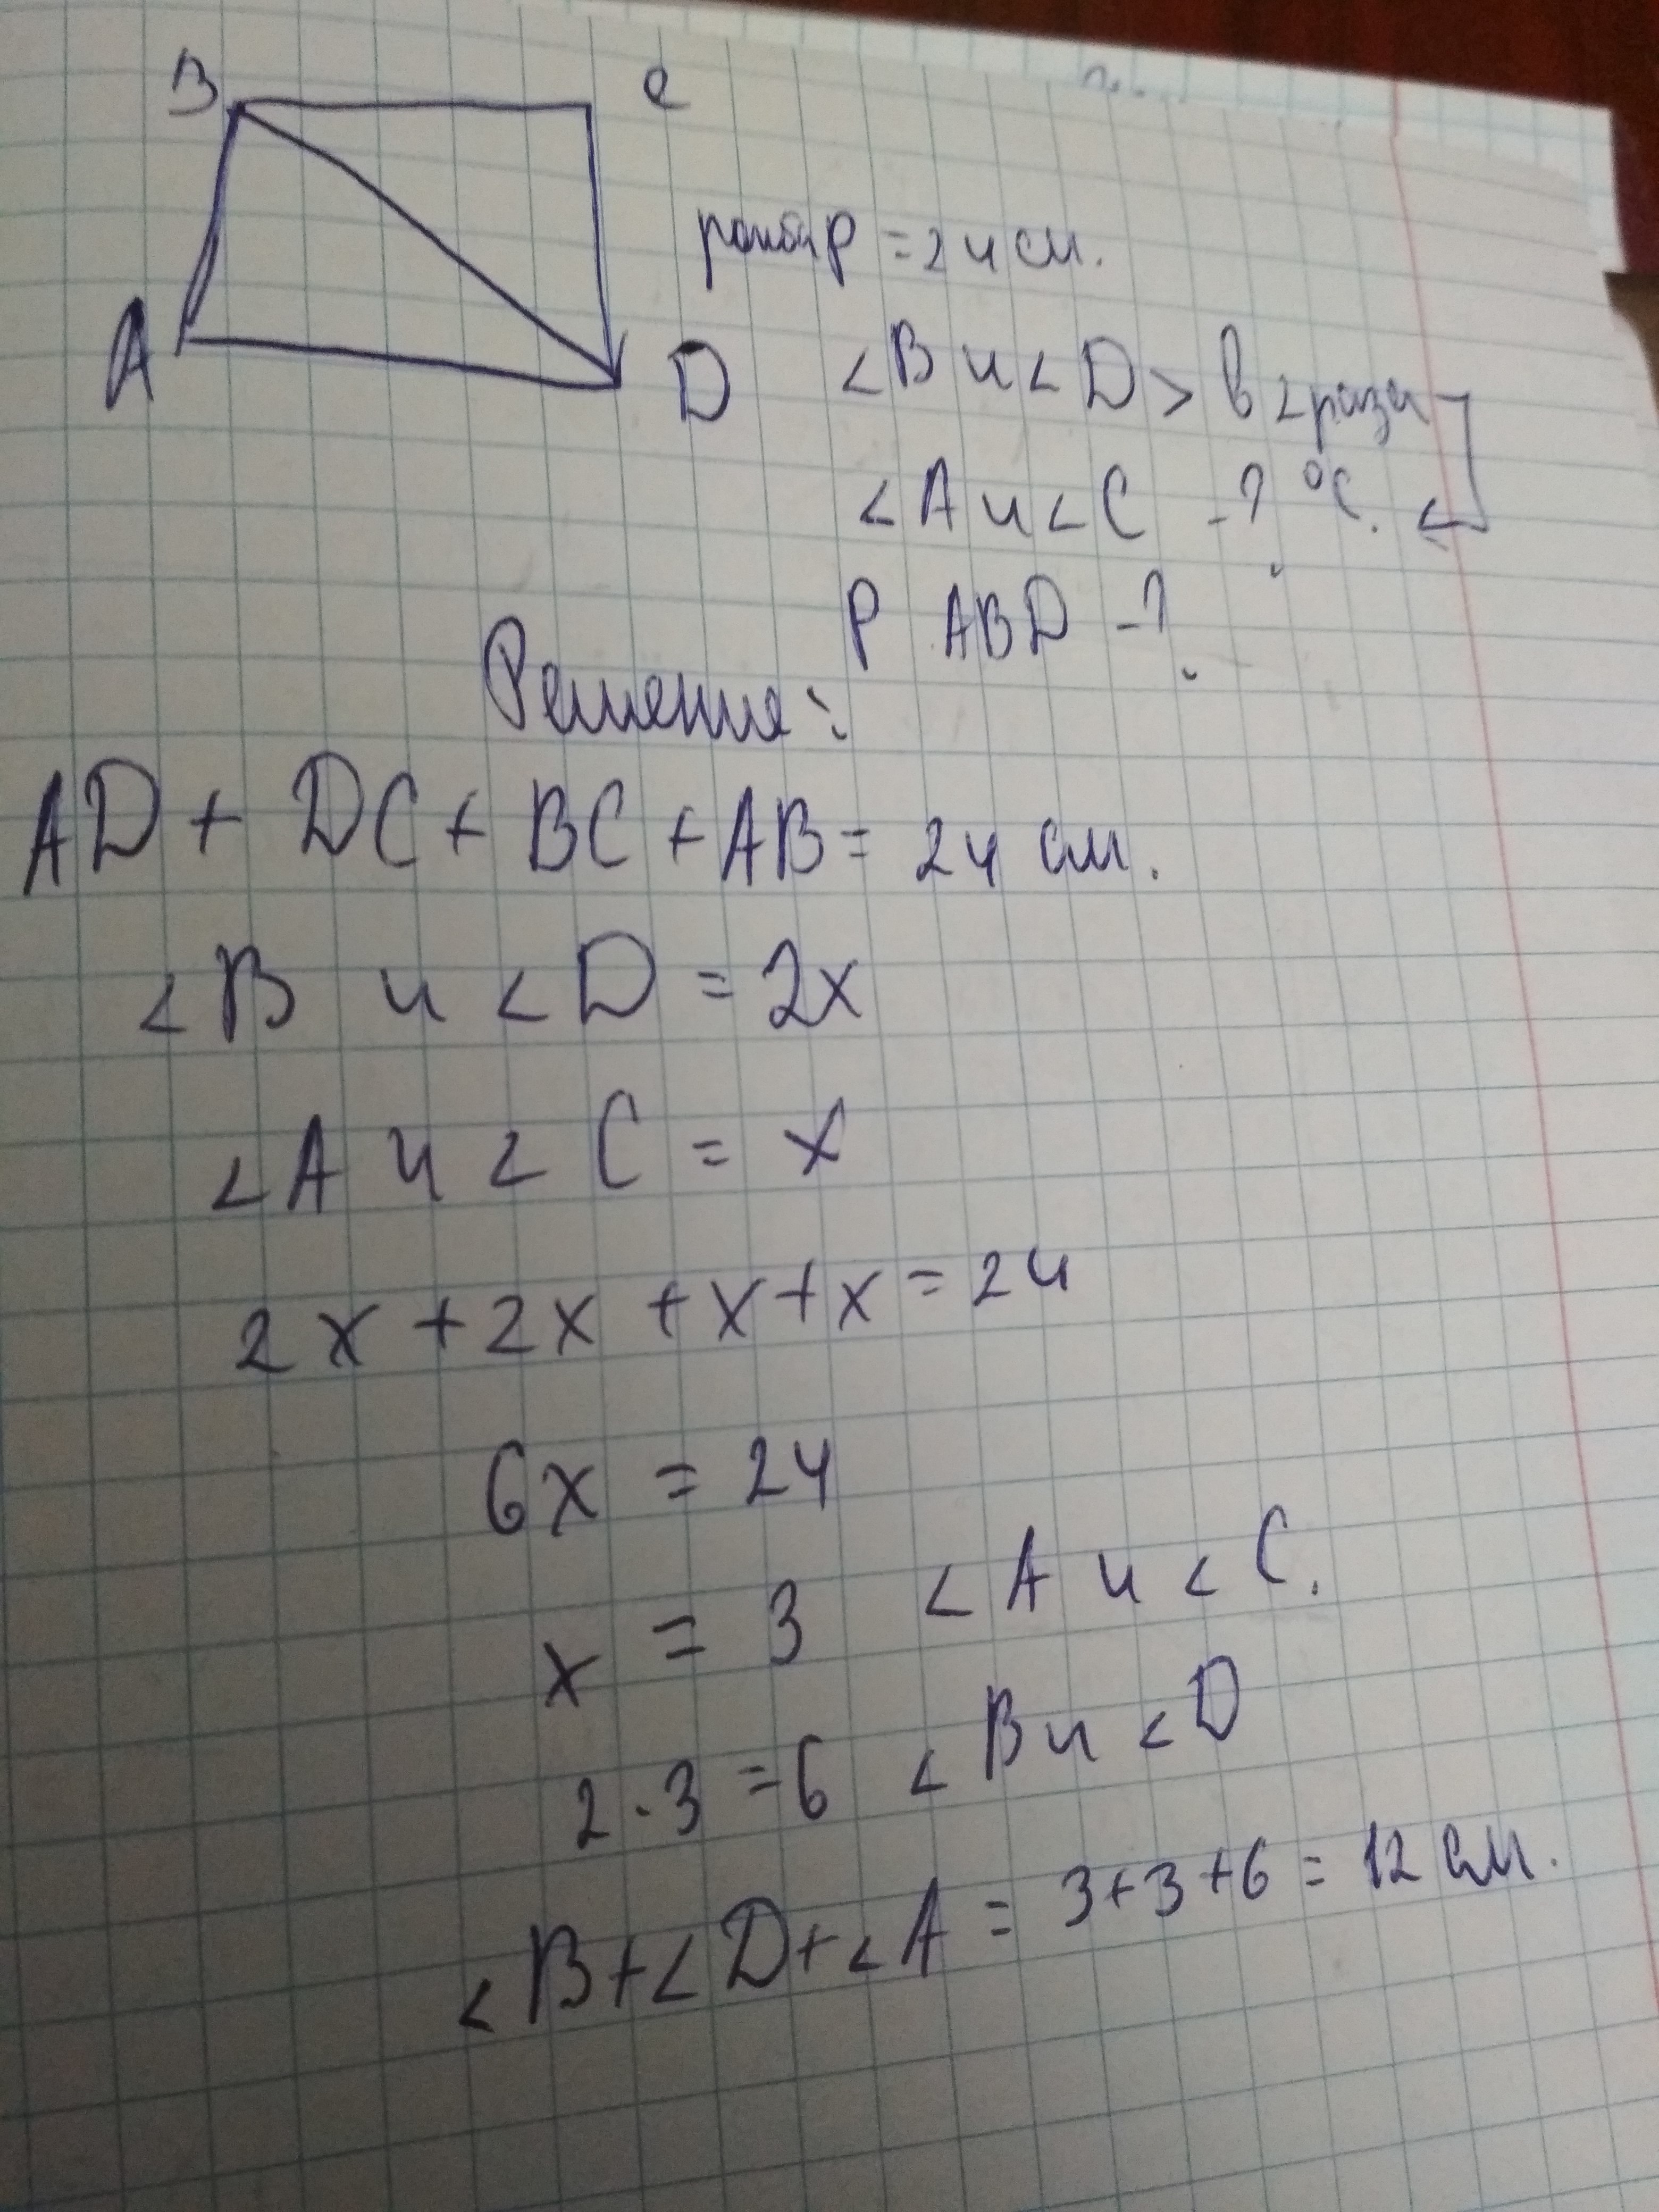 B C
A D
ромба P = 24 см.
<B и <D > в 2 раза
<A и <C - ? °С.
P ABD - ?
Решение:
AD + DC + BC + AB = 24 см.
<B и <D = 2x
<A и <C = x
2x + 2x + x + x = 24
6x = 24
x = 3 <A и <C.
2 · 3 = 6 <B и <D
<B + <D + <A = 3 + 3 + 6 = 12 см.